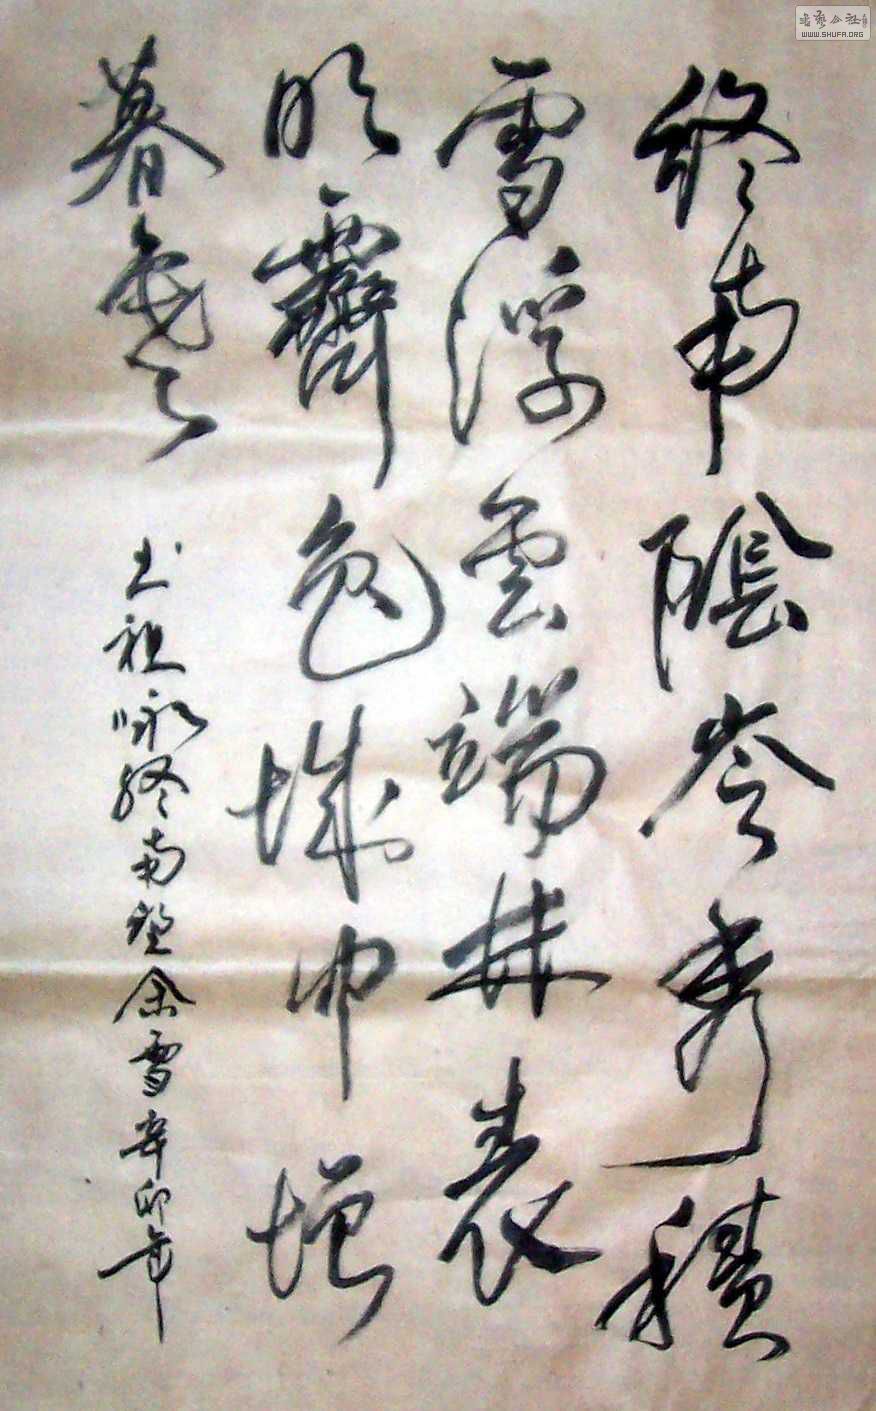 終南陰岺秀積
雪浮雲端林表
明霽色城中增
暮寒
书祖咏終南望余雪辛卯年
WWW.SHUFA.ORG